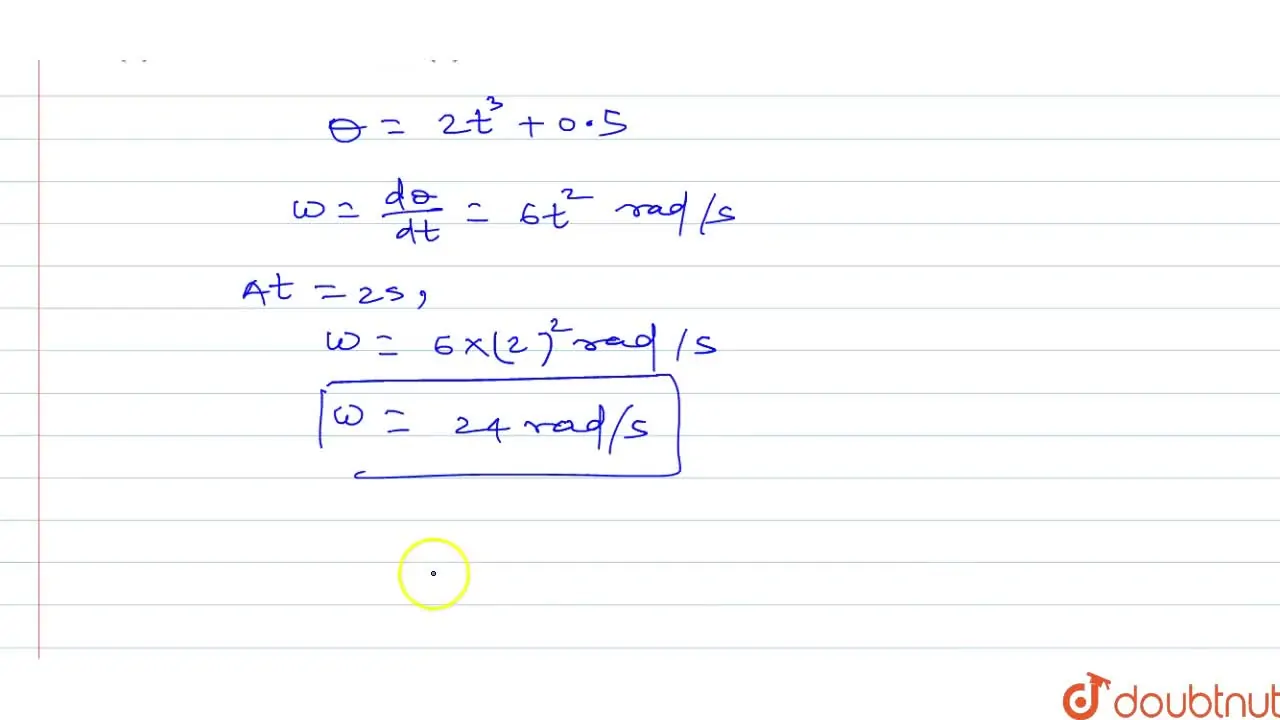 θ = 2t³ + 0.5
ω = dθ/dt = 6t² rad/s
At t = 2s,
ω = 6×(2)² rad/s
ω = 24 rad/s
doubtnut